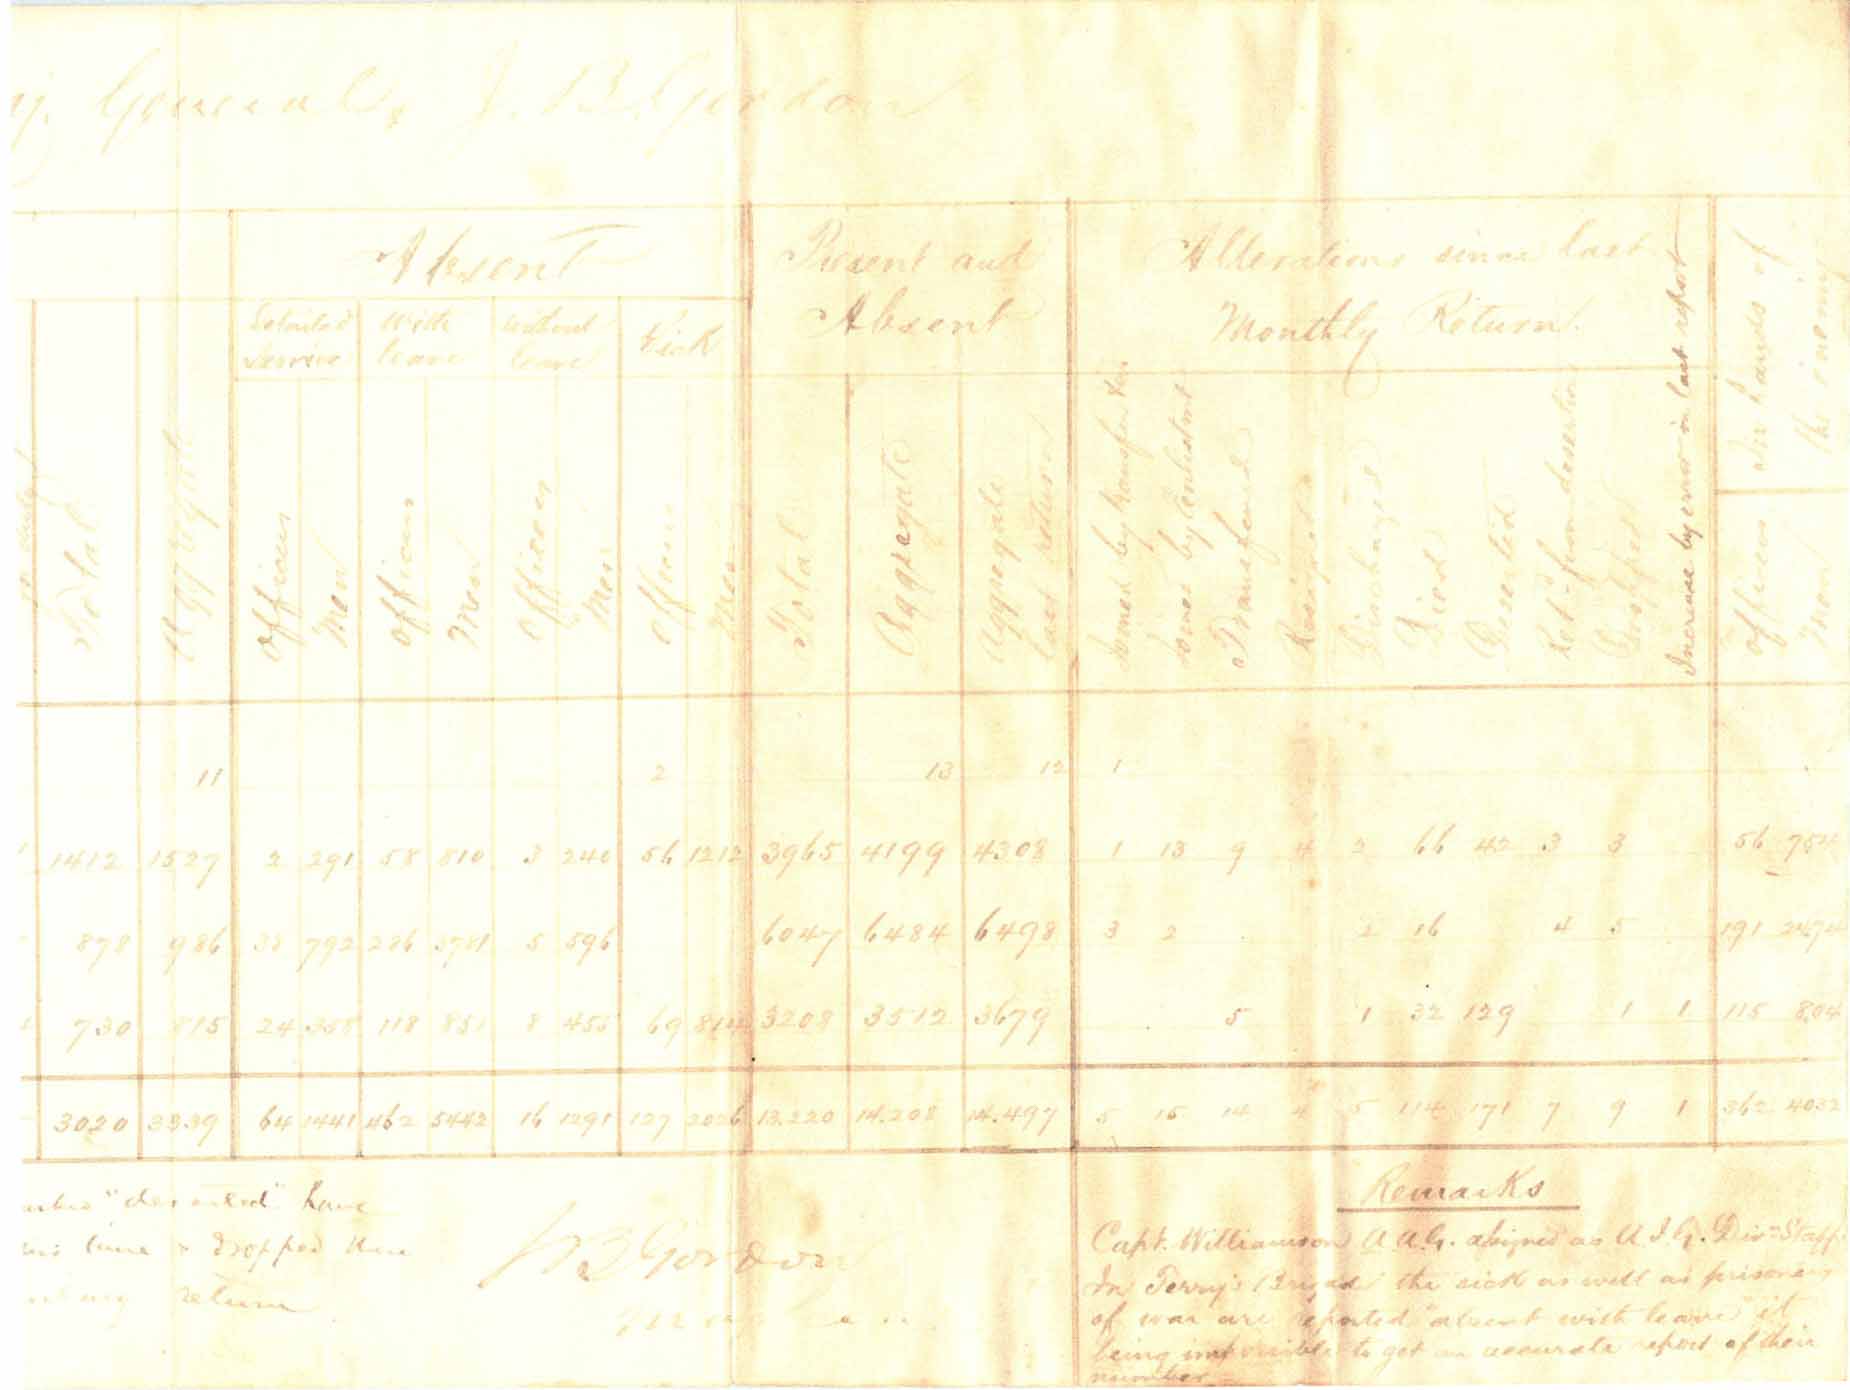 General J. B. Gordon
Absent
Present and Absent
Alterations since last Monthly Return.
In hands of the enemy
Detailed Service
With leave
Without leave
Sick
Total
Aggregate
Officers
Men
Officers
Men
Officers
Men
Officers
Men
Total
Aggregate
Aggregate last return
Joined by transfer
Joined by Enlistment
Transferred
Resigned
Discharged
Died
Deserted
Ret'd from desertion
Dropped
Increase by error in last report
Officers
Men
11 2 13 12 1
1412 1527 2 291 58 810 3 240 56 1212 3965 4199 4308 1 13 9 4 2 66 42 3 3 56 754
878 986 38 792 286 3781 5 596 6047 6484 6498 3 2 2 16 4 5 191 2474
730 815 24 358 118 851 8 455 69 814 3208 3512 3679 5 1 32 129 1 1 115 804
3020 3339 64 1441 462 5442 16 1291 127 2026 13.220 14.208 14.497 5 15 14 4 5 114 171 7 9 1 362 4032
"deserted" have
time & dropped
return
J B Gordon
Remarks
Capt. Williamson A.A.G. assigned as A.I.G. Divn Staff.
In Terry's Brigade the sick as well as prisoners
of war are reported "absent with leave" it
being impossible to get an accurate report of their
number